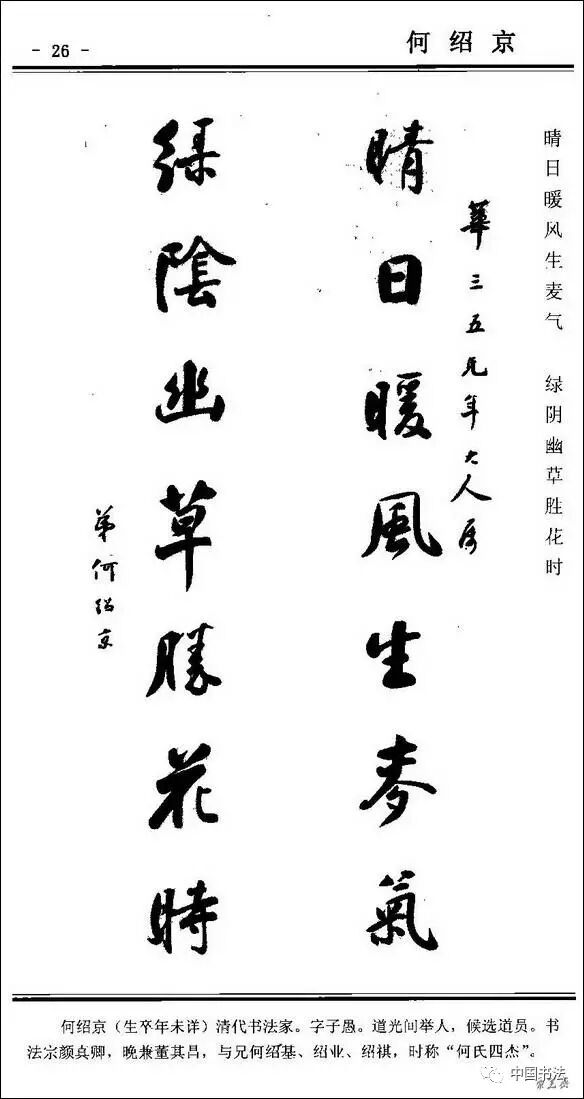 - 26 -
何绍京
晴日暖风生麦气 绿阴幽草胜花时
華三五兄年大人屬
晴日暖風生麥氣
綠陰幽草勝花時
弟何紹京
何绍京（生卒年未详）清代书法家。字子愚。道光间举人，候选道员。书
法宗颜真卿，晚兼董其昌，与兄何绍基、绍业、绍祺，时称“何氏四杰”。
中国书法